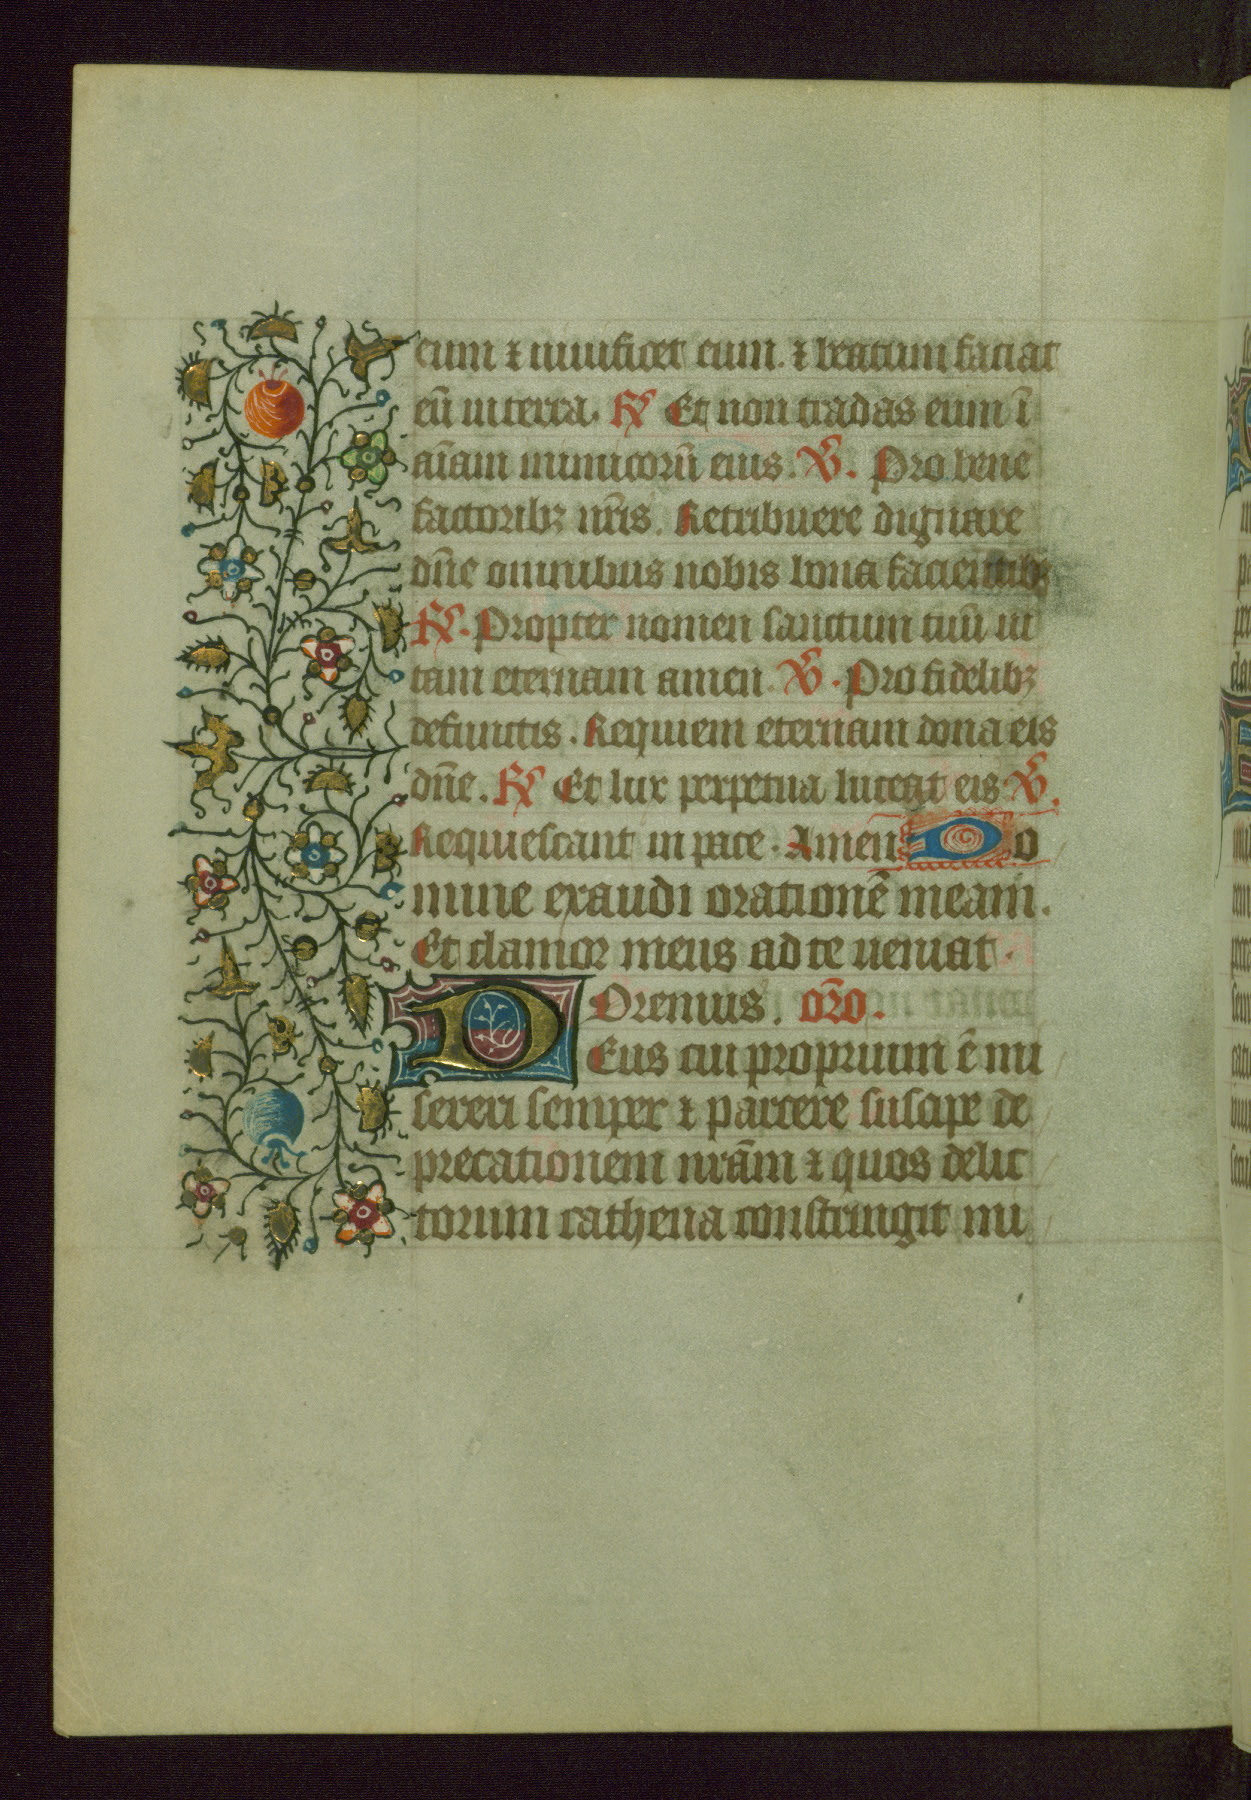 eum ⁊ uiuificet eum. ⁊ beatum faciat
eū in terra. ℟ Et non tradas eum ī
aīam inimicorū eius. ℣. Pro bene
factoribꝫ nr̄is. Retribuere dignare
dn̄e omnibus nobis bona facientibꝫ
℟. Propter nomen sanctum tuū ui
tam eternam amen. ℣. Pro fidelibꝫ
defunctis. Requiem eternam dona eis
dn̄e. ℟ Et lux perpetua luceat eis ℣.
Requiescant in pace. Amen Do
mine exaudi orationē meam.
Et clamor meus ad te ueniat.
Oremus. or̄o.
DEus cui proprium ē mi
sereri semper ⁊ parcere suscipe de
precationem nrām ⁊ quos delic
torum cathena constringit mi